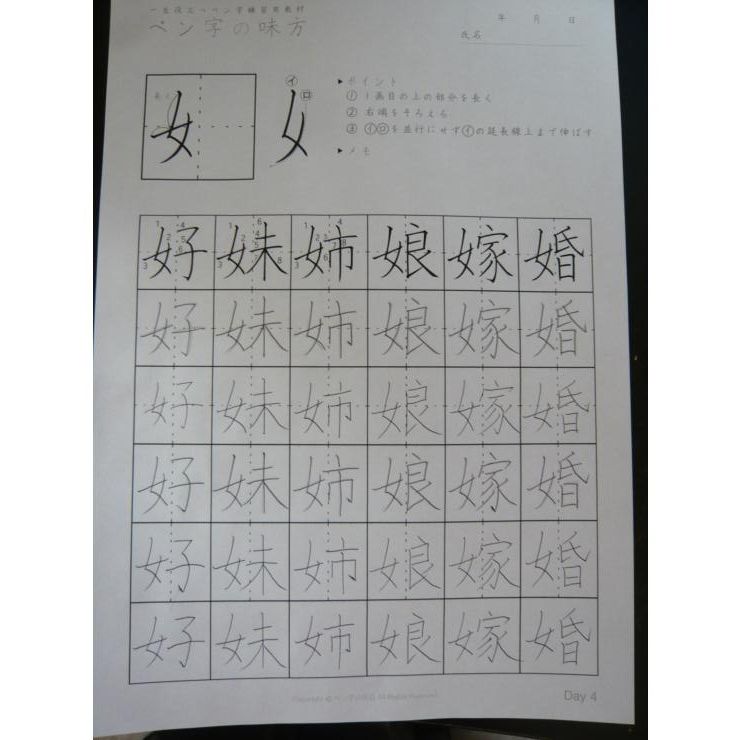 一生役立つペン字練習用教材
ペン字の味方
年 月 日
氏名
長く
女
イ
ロ
▶ポイント
① 1画目の上の部分を長く
② 右端をそろえる
③ イロを並行にせずイの延長線上まで伸ばす
▶メモ
好 妹 姉 娘 嫁 婚
好 妹 姉 娘 嫁 婚
好 妹 姉 娘 嫁 婚
好 妹 姉 娘 嫁 婚
好 妹 姉 娘 嫁 婚
好 妹 姉 娘 嫁 婚
Copyright © ペン字の味方 All Rights Reserved.
Day 4